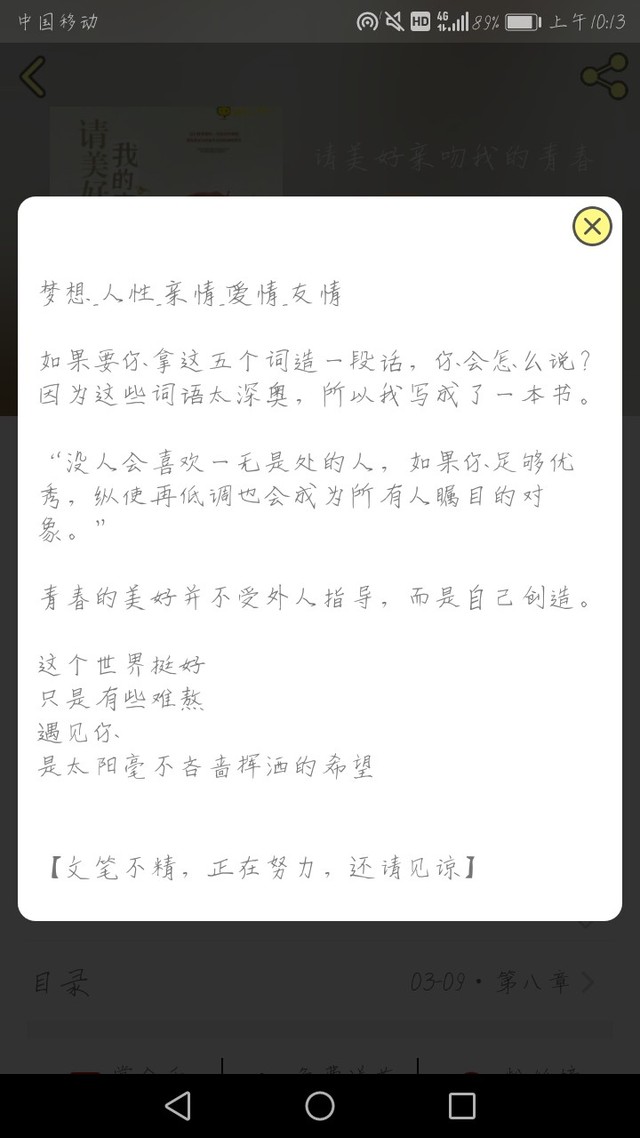 中国移动
HD 4G 89% 上午10:13
请美好
我的
请美好亲吻我的青春
梦想_人性_亲情_爱情_友情
如果要你拿这五个词造一段话，你会怎么说？
因为这些词语太深奥，所以我写成了一本书。
“没人会喜欢一无是处的人，如果你足够优
秀，纵使再低调也会成为所有人瞩目的对
象。”
青春的美好并不受外人指导，而是自己创造。
这个世界挺好
只是有些难熬
遇见你
是太阳毫不吝啬挥洒的希望
【文笔不精，正在努力，还请见谅】
目录
03-09·第八章